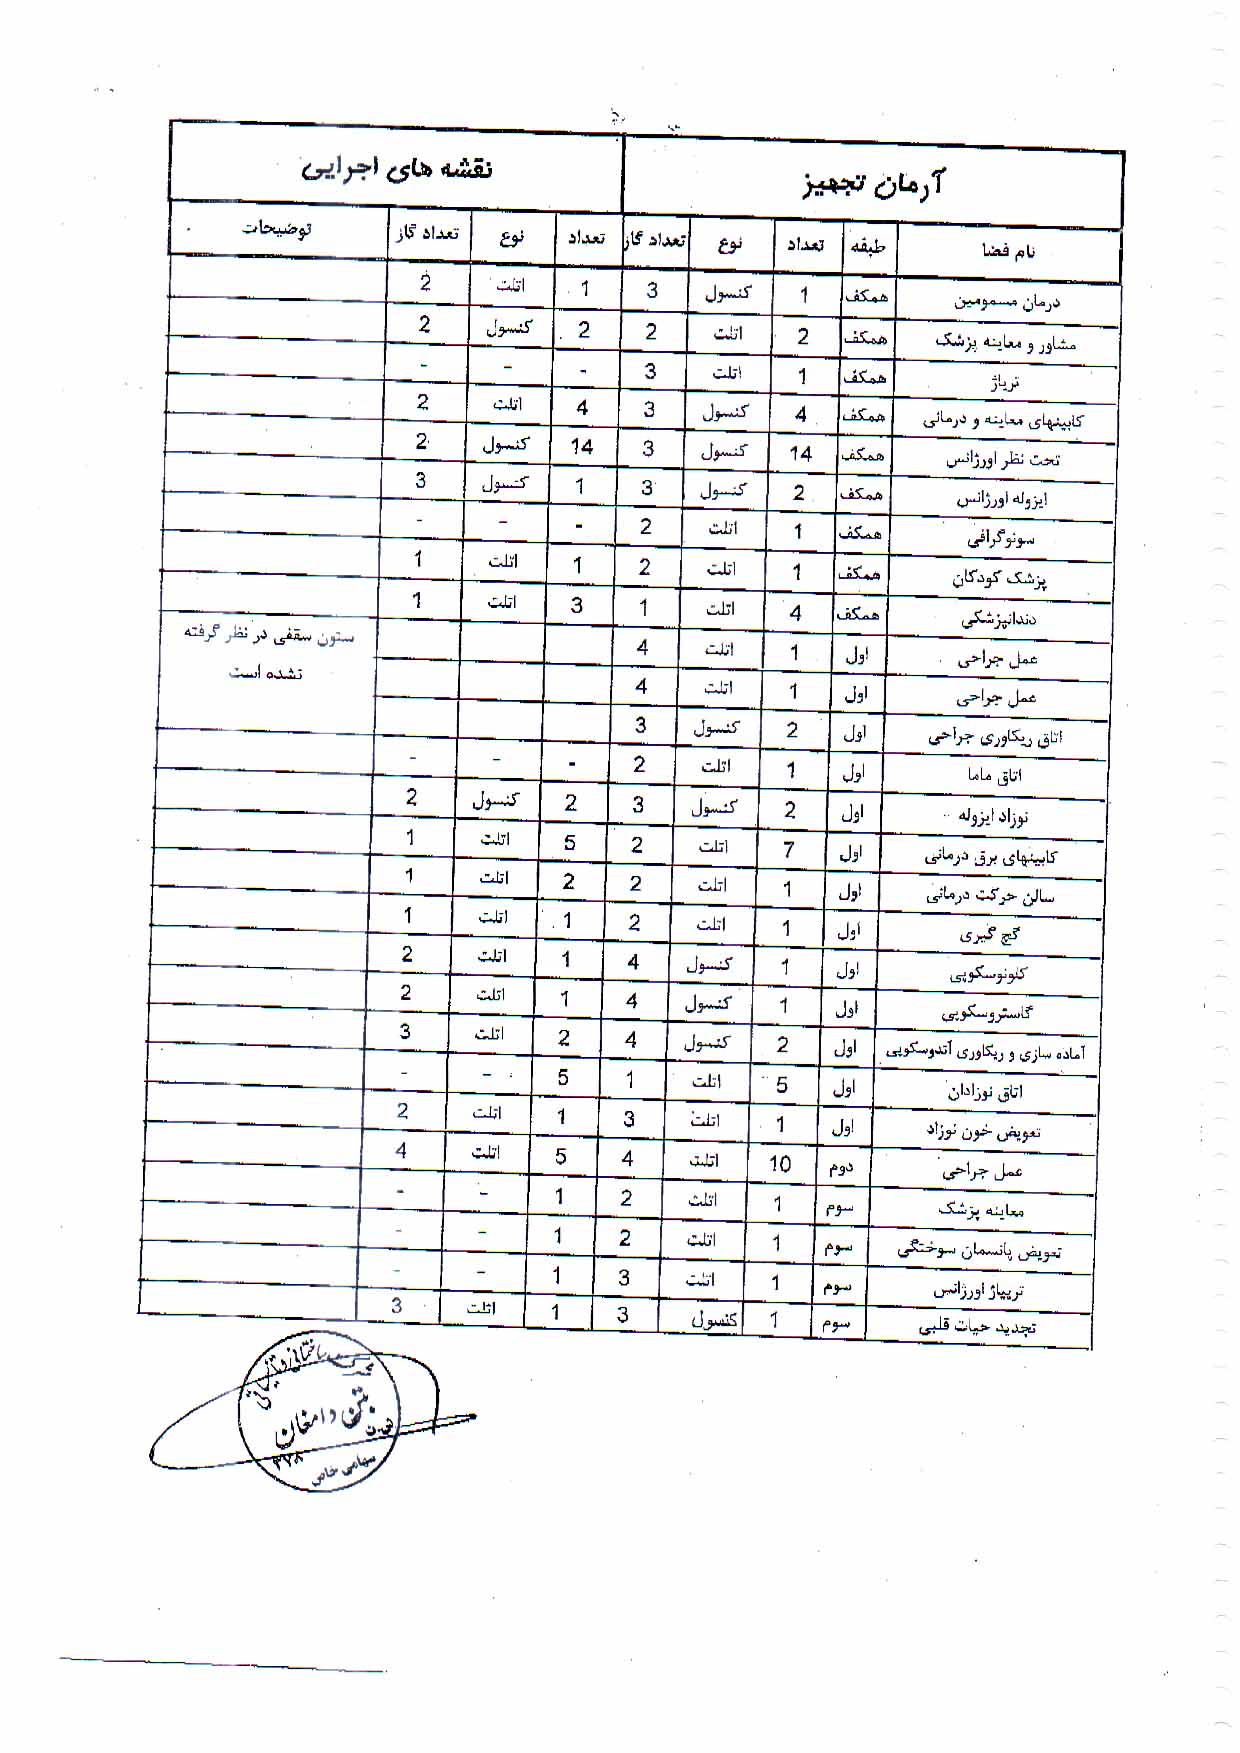 آرمان تجهیز | نقشه های اجرایی
نام فضا | طبقه | تعداد | نوع | تعداد گاز | تعداد | نوع | تعداد گاز | توضیحات
درمان مسمومین | همکف | 1 | کنسول | 3 | 1 | اتلت | 2
مشاور و معاینه پزشک | همکف | 2 | اتلت | 2 | 2 | کنسول | 2
تریاژ | همکف | 1 | اتلت | 3 | - | - | -
کابینهای معاینه و درمانی | همکف | 4 | کنسول | 3 | 4 | اتلت | 2
تحت نظر اورژانس | همکف | 14 | کنسول | 3 | 14 | کنسول | 2
ایزوله اورژانس | همکف | 2 | کنسول | 3 | 1 | کنسول | 3
سونوگرافی | همکف | 1 | اتلت | 2 | - | - | -
پزشک کودکان | همکف | 1 | اتلت | 2 | 1 | اتلت | 1
دندانپزشکی | همکف | 4 | اتلت | 1 | 3 | اتلت | 1
عمل جراحی | اول | 1 | اتلت | 4 | ستون سقفی در نظر گرفته
عمل جراحی | اول | 1 | اتلت | 4 | نشده است
اتاق ریکاوری جراحی | اول | 2 | کنسول | 3
اتاق ماما | اول | 1 | اتلت | 2 | - | - | -
نوزاد ایزوله | اول | 2 | کنسول | 3 | 2 | کنسول | 2
کابینهای برق درمانی | اول | 7 | اتلت | 2 | 5 | اتلت | 1
سالن حرکت درمانی | اول | 1 | اتلت | 2 | 2 | اتلت | 1
گچ گیری | اول | 1 | اتلت | 2 | 1 | اتلت | 1
کلونوسکوپی | اول | 1 | کنسول | 4 | 1 | اتلت | 2
گاستروسکوپی | اول | 1 | کنسول | 4 | 1 | اتلت | 2
آماده سازی و ریکاوری آندوسکوپی | اول | 2 | کنسول | 4 | 2 | اتلت | 3
اتاق نوزادان | اول | 5 | اتلت | 1 | 5 | - | -
تعویض خون نوزاد | اول | 1 | اتلت | 3 | 1 | اتلت | 2
عمل جراحی | دوم | 10 | اتلت | 4 | 5 | اتلت | 4
معاینه پزشک | سوم | 1 | اتلت | 2 | 1 | - | -
تعویض پانسمان سوختگی | سوم | 1 | اتلت | 2 | 1 | - | -
تریپاژ اورژانس | سوم | 1 | اتلت | 3 | 1 | - | -
تجدید حیات قلبی | سوم | 1 | کنسول | 3 | 1 | اتلت | 3
بتن دامغان
سهامی خاص